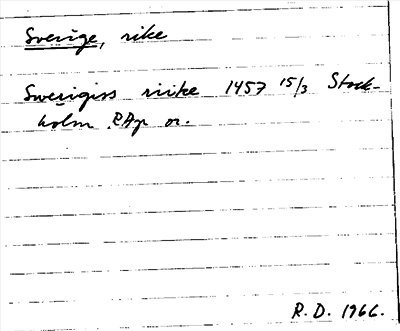 Sverige, rike
Swerigiss riike 1457 15/3 Stock-
holm RAp or.
R.D. 1966.